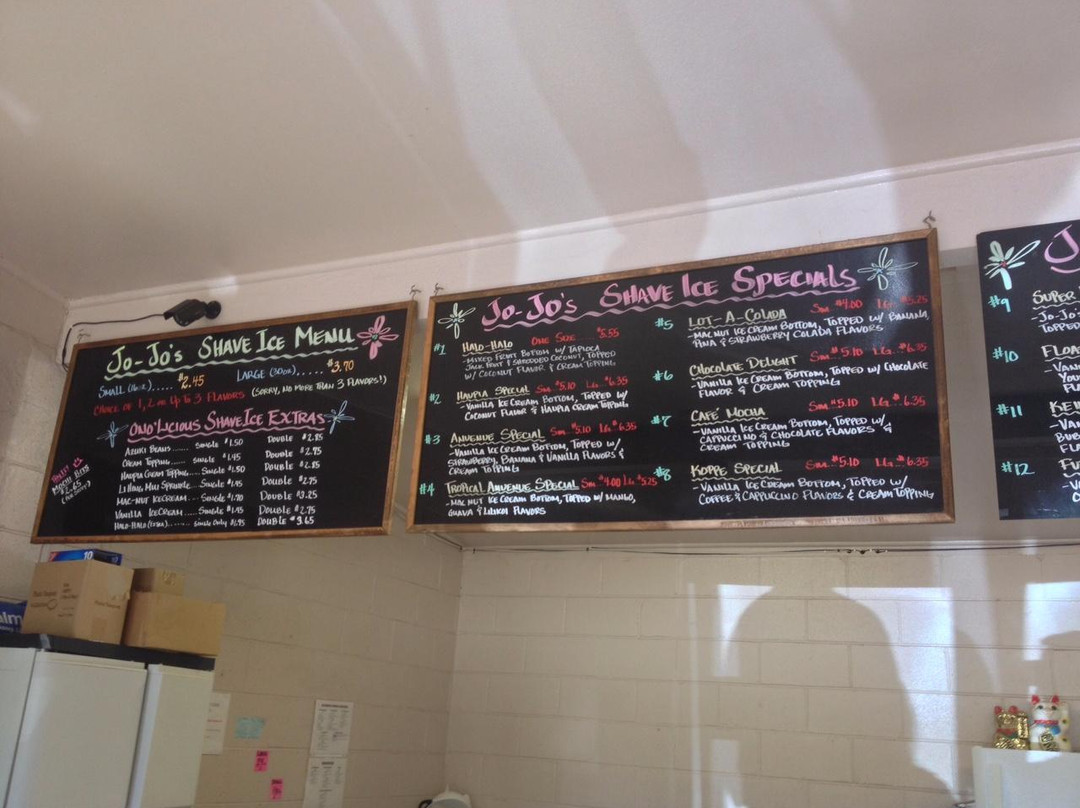 Jo-Jo's Shave Ice Menu
Small (16oz)..... $2.45 Large (30oz)..... $3.70
Choice of 1, 2 or Up To 3 Flavors (Sorry, no more than 3 flavors!)
Ono'Licious Shave Ice Extras
Azuki Beans.... Single $1.50
Cream Topping.... Single $1.45
Haupia Cream Topping.. Single $1.50
Li Hing Mui Sprinkle... Single
Mac-Nut Ice Cream... Single $1.70 Double $3.25
Vanilla Ice Cream.... Single $1.45 Double $2.75
Halo-Halo (Extra)..... Single Only $1.95 Double $3.65
Jo-Jo's Shave Ice Specials
#1 Halo-Halo One Size..... $5.55
-Mixed Fruit Bottom w/ Tapioca
Jack Fruit & Shredded Coconut, Topped
w/ Coconut Flavor & Cream Topping
#2 Haupia Special Sm. $5.10 Lg. $6.35
-Vanilla Ice Cream Bottom, Topped w/
Coconut Flavor & Haupia Cream Topping
#3 Anuenue Special Sm. $5.10 Lg. $6.35
-Vanilla Ice Cream Bottom, Topped w/
Strawberry, Banana & Vanilla Flavors &
Cream Topping
#4 Tropical Anuenue Special Sm $4.00 Lg. $5.25
-Mac Nut Ice Cream Bottom, Topped w/ Mango,
Guava & Lilikoi Flavors
#5 Lot-A-Colada Sm. $4.00 Lg. $5.25
-Mac Nut Ice Cream Bottom, Topped w/ Banana,
Pina & Strawberry Colada Flavors
#6 Chocolate Delight Sm. $5.10 Lg.. $6.35
-Vanilla Ice Cream Bottom, Topped w/ Chocolate
Flavor & Cream Topping
#7 Café Mocha Sm... $5.10 Lg.. $6.35
-Vanilla Ice Cream Bottom, Topped w/
Cappuccino & Chocolate Flavors &
Cream Topping
#8 Koppe Special Sm... $5.10 Lg... $6.35
-Vanilla Ice Cream Bottom, Topped w/
Coffee & Cappuccino Flavors & Cream Topping
J
#9 Super
-Jo-Jo's
Topped
#10 Float
#11
#12